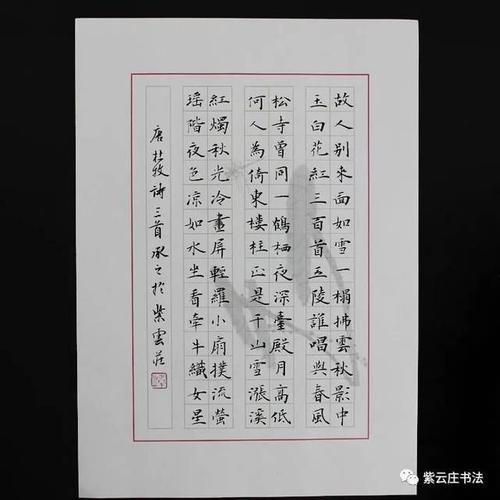 故人别来面如雪一榻拂雲秋影中
玉白花紅三百首五陵誰唱與春風
松寺曾同一鶴栖夜深臺殿月高低
何人為倚東樓柱正是千山雪漲溪
紅燭秋光冷畫屏輕羅小扇撲流螢
瑶階夜色凉如水坐看牽牛織女星
唐杜牧詩三首承之於紫雲莊
紫云庄书法